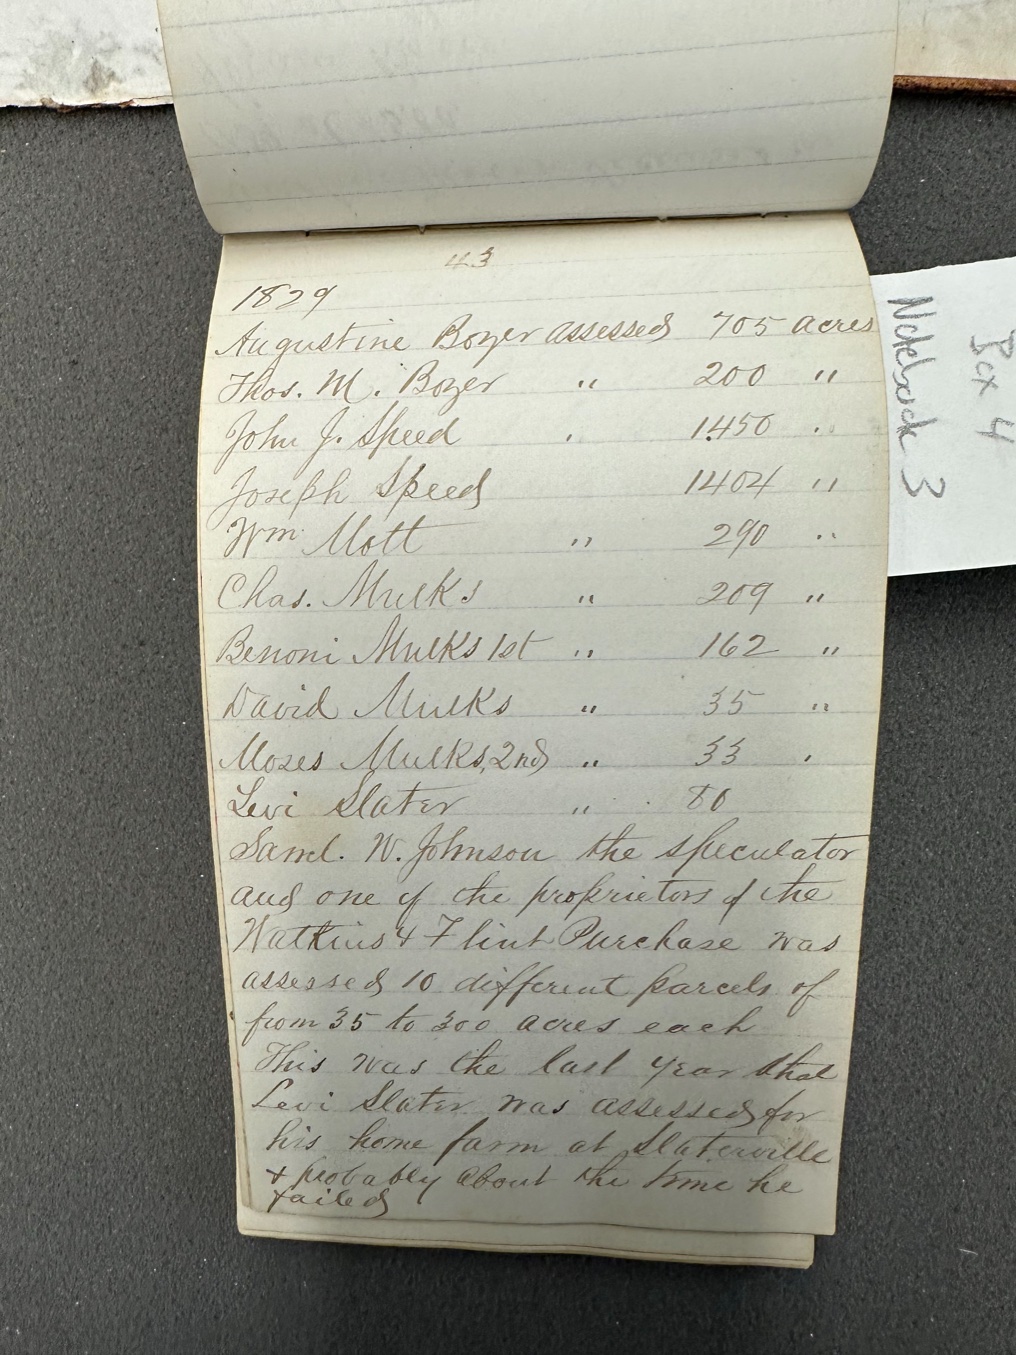 43
1829
Augustine Bozer assessed 705 acres
Thos. M. Bozer " 200 "
John J. Speed " 1450 "
Joseph Speed 1404 "
Wm Mott " 290 "
Chas. Mulks " 209 "
Benoni Mulks 1st " 162 "
David Mulks " 35 "
Moses Mulks, 2nd " 33 "
Levi Slater " 80
Saml. W. Johnson the speculator
and one of the proprietors of the
Watkins & Flint Purchase was
assessed 10 different parcels of
from 35 to 300 acres each
This was the last year that
Levi Slater was assessed for
his home farm at Slaterville
& probably about the time he
failed
Box 4
Notebook 3